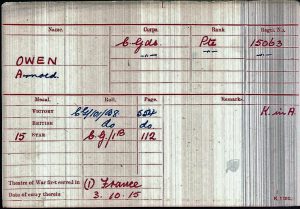 Name. Corps. Rank Regtl. No.
OWEN C. Gds. Pte 15063
Arnold
Medal. Roll. Page. Remarks.
VICTORY CG/101/B8 554 K. in A.
BRITISH do do
15 STAR C.G./1B 112
Theatre of War first served in (1) France
Date of entry therein 3.10.15
K 1380.